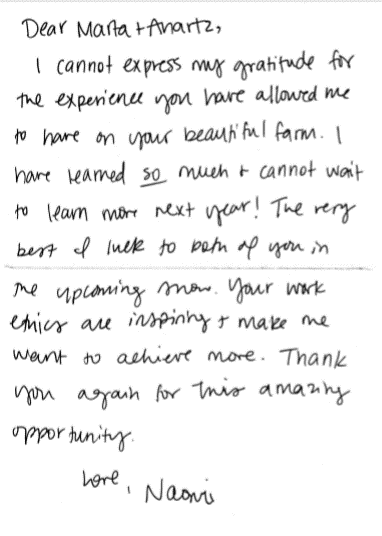 Dear Marta + Anartz,
I cannot express my gratitude for
the experience you have allowed me
to have on your beautiful farm. I
have learned so much + cannot wait
to learn more next year! The very
best of luck to both of you in
the upcoming snow. Your work
ethics are inspiring + make me
want to achieve more. Thank
you again for this amazing
opportunity.
Love, Naomi